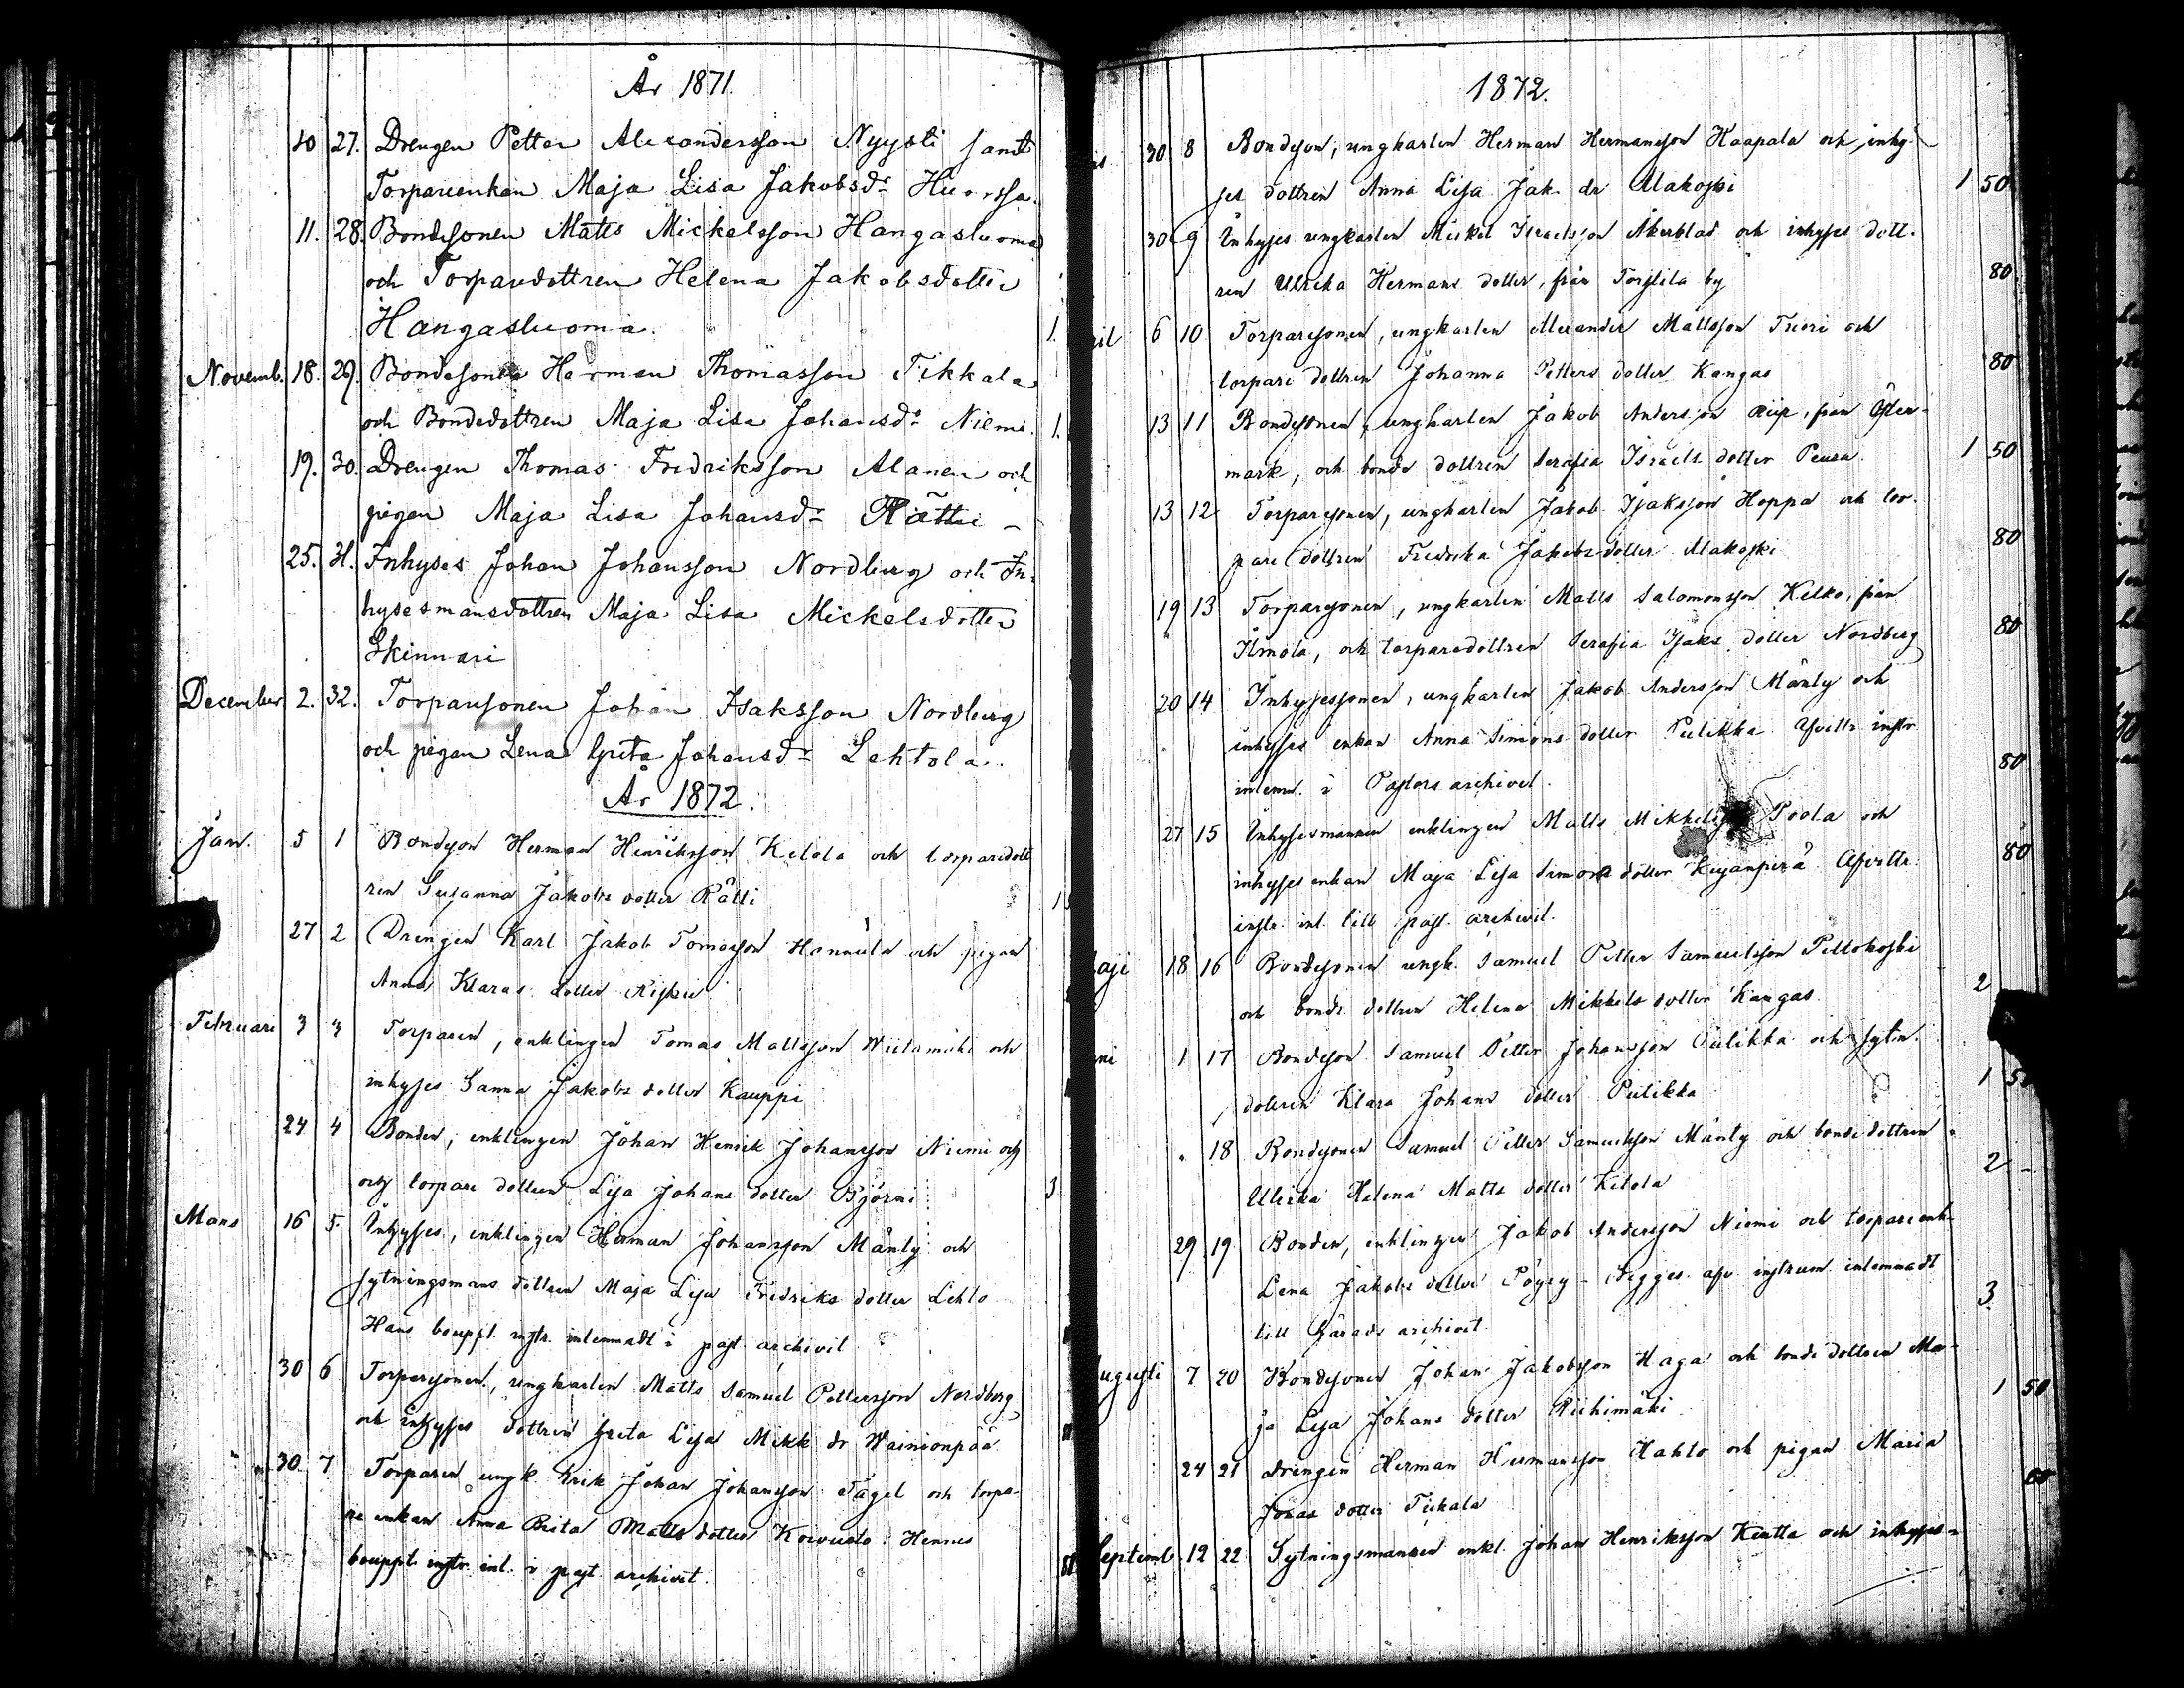 År 1871.
10 27. Drengen Petter Alexandersson Nyysti samt
Torpareenkan Maja Lisa Jakobsdr
11. 28. Bondesonen Matts Mickelsson Hangasluoma
och Torparedottren Helena Jakobsdotter
Hangasluoma. 1.
Novemb. 18. 29. Bondesonen Herman Thomasson Tikkala
och Bondedottren Maja Lisa Johansdr Niemi. 1.
19. 30. Drengen Thomas Fredriksson Alanen och
pigan Maja Lisa Johansdr Rättei
25. 31. Inhyses Johan Johansson Nordberg och In-
hysesmansdottren Maja Lisa Mickelsdotter
Skinnari
December 2. 32. Torparesonen Johan Isaksson Nordberg
och pigan Lena Greta Johansdr Lehtola.
År 1872.
Jan. 5 1 Bondeson Herman Henriksson Ketola och torparedott
ren Susanna Jakobs dotter Rätti 1
27 2 Drengen Karl Jakob Tomasson Hannula och pigan
Anna Klaras dotter
Februari 3 3 Torparen, enklingen Tomas Mattsson Wiitamäki och
inhyses Sanna Jakobs dotter Kauppi
24 4 Bonden, enklingen Johan Henrik Johansson Niemi och
och torpare dottren Lisa Johans dotter Björni 3
Mars 16 5 Inhyses, enklingen Herman Johansson Mänty och
sytningsmans dottren Maja Lisa Fredriks dotter Lehto
Hans bouppt. instr. inlemnadt i past. archivet
30 6 Torparesonen, ungkarlen Matts Samuel Pettersson Nordberg
och inhyses dottren Greta Lisa Mikk. dr Wainionpää
30 7 Torparen ungk. Erik Johan Johansson Tågel och torpa-
re enkan Anna Brita Matts dotter Koivusto. Hennes
bouppt. instr. inl. i past. archivet.
1872.
30 8 Bondeson, ungkarlen Herman Hermansson Haapala och inhy-
ses dottren Anna Lisa Jak. dr Alakoski 1 50
30 9 Inhyses ungkarlen Mickel Israelsson Åkerblad och inhyses dott-
ren Ulrika Hermans dotter, från Torstila by 80
6 10 Torparesonen, ungkarlen Alexander Mattsson och
torpare dottren Johanna Petters dotter Kangas 80
13 11 Bondesonen, ungkarlen Jakob Andersson från Öster-
mark, och bonde dottren Serafia Israels dotter Peura. 1 50
13 12 Torparesonen, ungkarlen Jakob Isaksson Hoppa och tor-
pare dottren Fredrika Jakobs dotter Alakoski 80
19 13 Torparesonen, ungkarlen Matts Salomonsson Kelko, från
Ilmola, och torparedottren Serafia Isaks dotter Nordberg 80
20 14 Inhysessonen, ungkarlen Jakob Andersson Mänty och
inhyses enkan Anna Simons dotter Pulikka. Afvittr. instr.
inlemn. i Pastors archivet. 80
27 15 Inhysesmannen enklingen Matts Poola och
inhyses enkan Maja Lisa Simons dotter Keyanperä Afvittr. 80
instr. inl. till past. archivet.
18 16 Bondesonen ungk. Samuel Petter Samuelsson Peltokoski
och bonde dottren Helena Mikkels dotter Kangas. 2
1 17 Bondeson Samuel Petter Johansson Pulikka och sytn.
dottren Klara Johans dotter Pulikka 1 50
" 18 Bondesonen Samuel Petter Samuelsson Mänty och bondedottren
Ulrika Helena Matts dotter Ketola 2 -
29 19 Bonden, enklingen Jakob Andersson Niemi och torpareenk-
Lena Jakobs dotter Pöyry - Begges afv. instrum inlemnadt
till härads archivet. 3.
ugusti 7 20 Bondesonen Johan Jakobsson Haga och bonde dottren Ma-
ja Lisa Johans dotter Riihimäki 1 50
24 21 Drengen Herman Hermansson Hahto och pigan Maria
Jonas dotter 80
Septemb. 12 22 Sytningsmannen enkl. Johan Henriksson Kentta och inhyses-